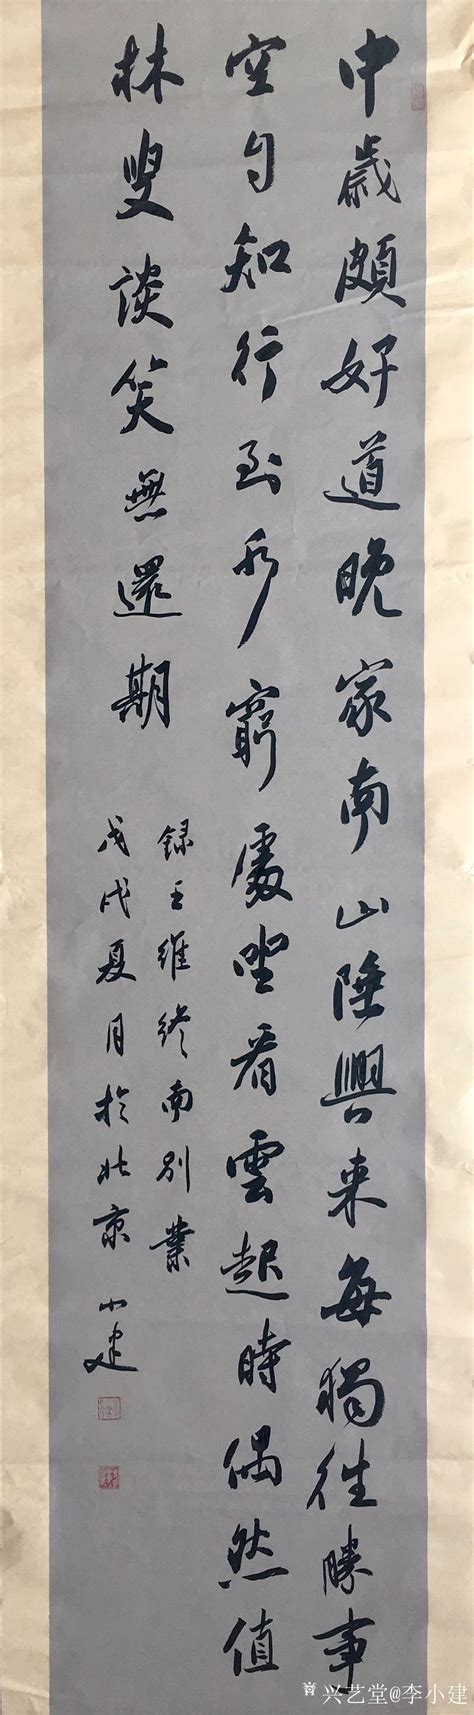 中歲頗好道晚家南山陲興来每獨往勝事
空自知行到水窮處坐看雲起時偶然值
林叟談笑無還期
録王維終南别業
戊戌夏月於北京小建
兴艺堂@李小建